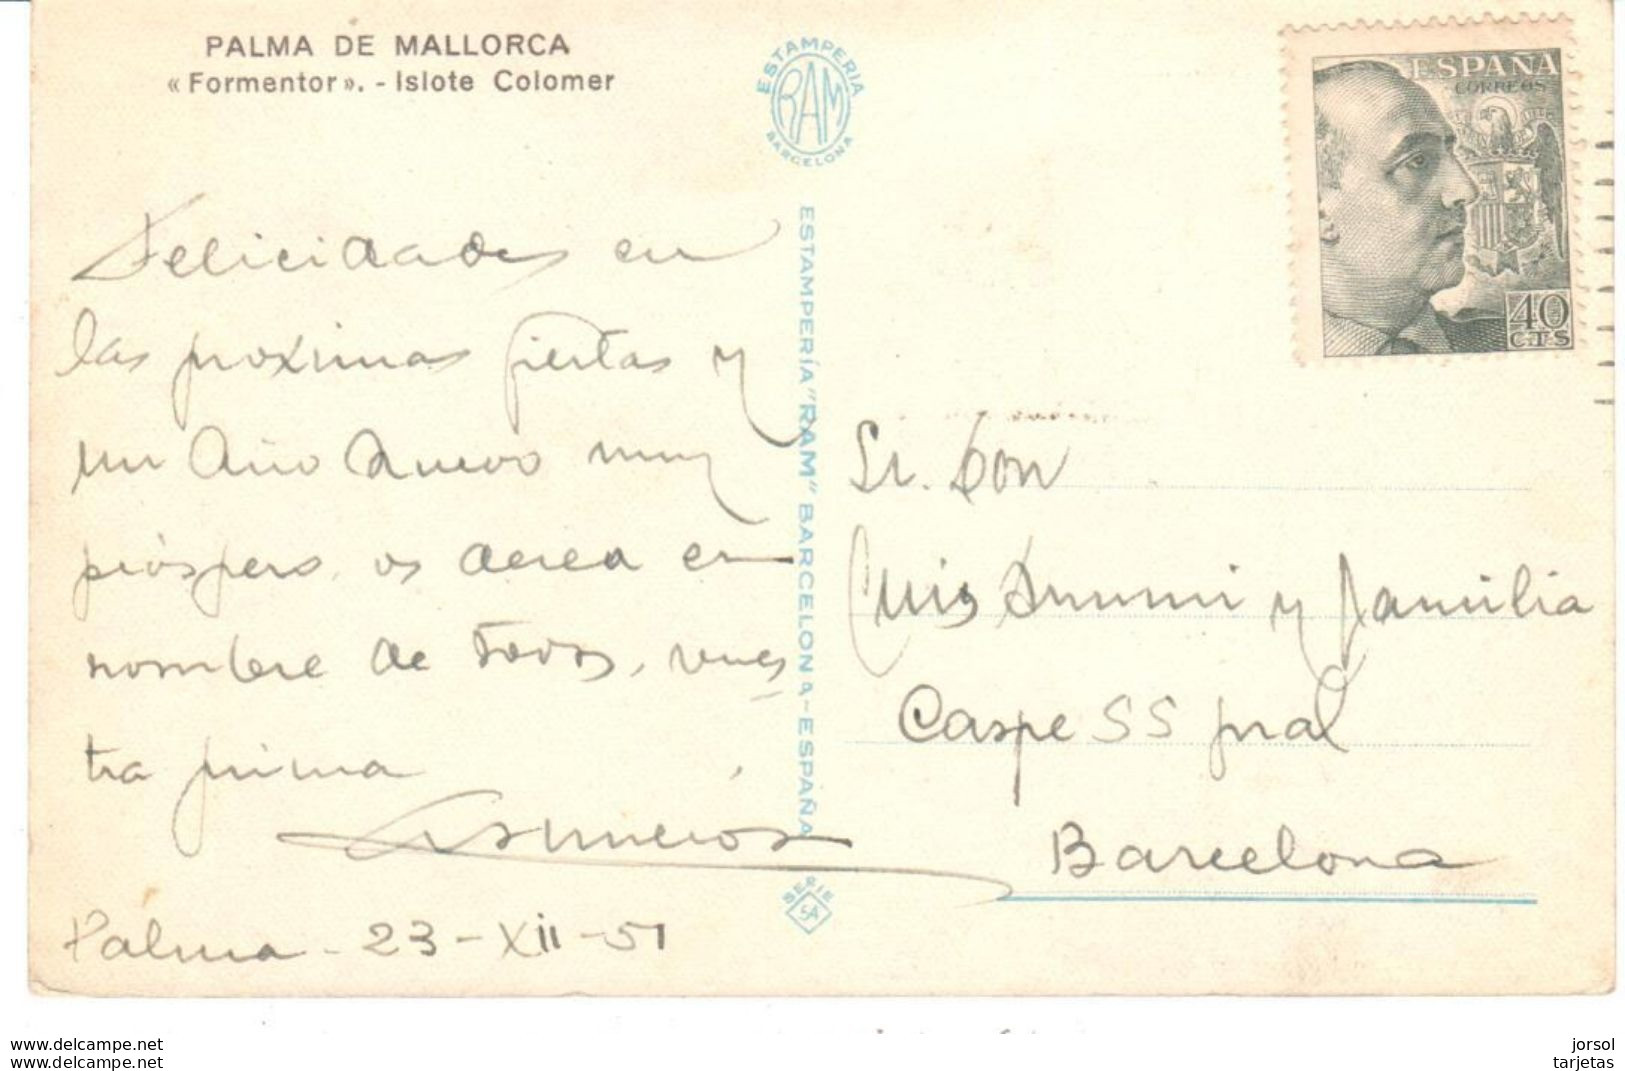 PALMA DE MALLORCA
«Formentor». - Islote Colomer
Felicidades en
las proximas fiestas y
un Año Nuevo muy
próspero, os desea en
nombre de todos, vues
tra prima
Palma - 23 - XII - 51
ESTAMPERIA
RAM
BARCELONA
ESTAMPERÍA "RAM" BARCELONA - ESPAÑA
SERIE
SA
ESPAÑA
CORREOS
40
CTS
Sr. Don
Luis y familia
Caspe 55 pral
Barcelona
www.delcampe.net
www.delcampe.net
jorsol
tarjetas